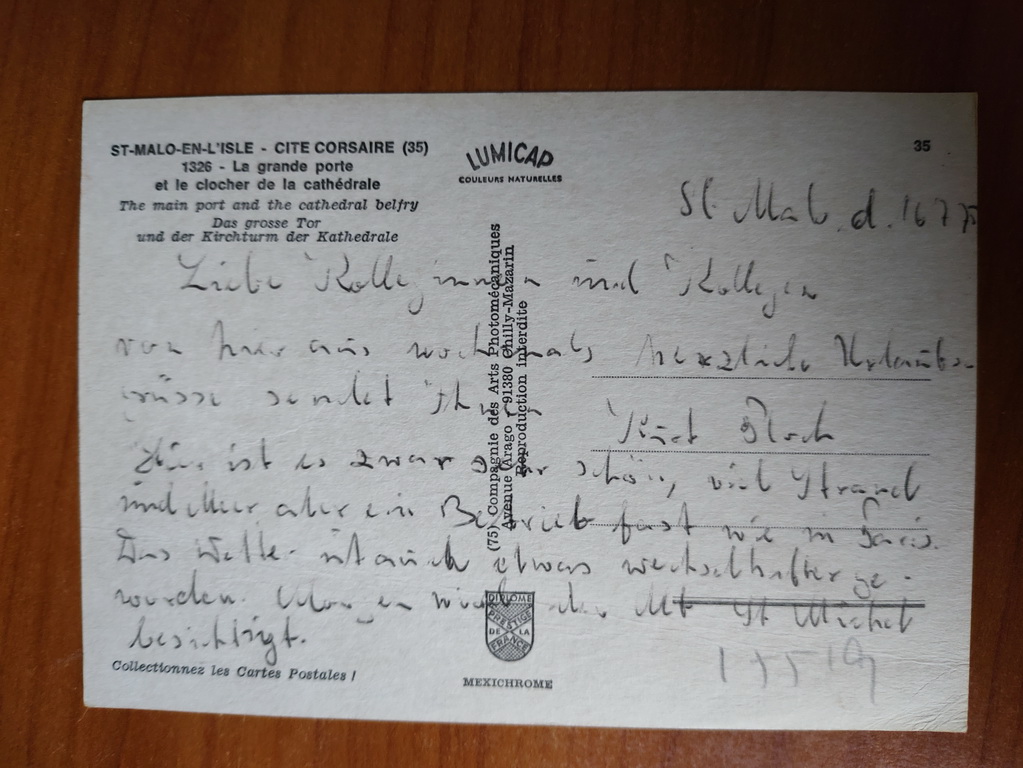 ST-MALO-EN-L'ISLE - CITE CORSAIRE (35)
1326 - La grande porte
et le clocher de la cathédrale
The main port and the cathedral belfry
Das grosse Tor
und der Kirchturm der Kathedrale
LUMICAP
COULEURS NATURELLES
35
St. Malo, d. 16 7 75
Liebe Kolleginnen und Kollegen
von hier aus nochmals herzliche Urlaubs-
grüsse sendet Ihnen
Bloch
Hier ist es zwar sehr schön, viel Strand
und Meer aber ein Betrieb fast wie in Paris.
Das Wetter ist auch etwas wechselhafter ge-
worden. Morgen wird der Mt St Michel
besichtigt.
(75) Compagnie des Arts Photomécaniques
Avenue Arago - 91380 Chilly-Mazarin
Reproduction interdite
DIPLOME
PRESTIGE
DE LA
FRANCE
MEXICHROME
Collectionnez les Cartes Postales !